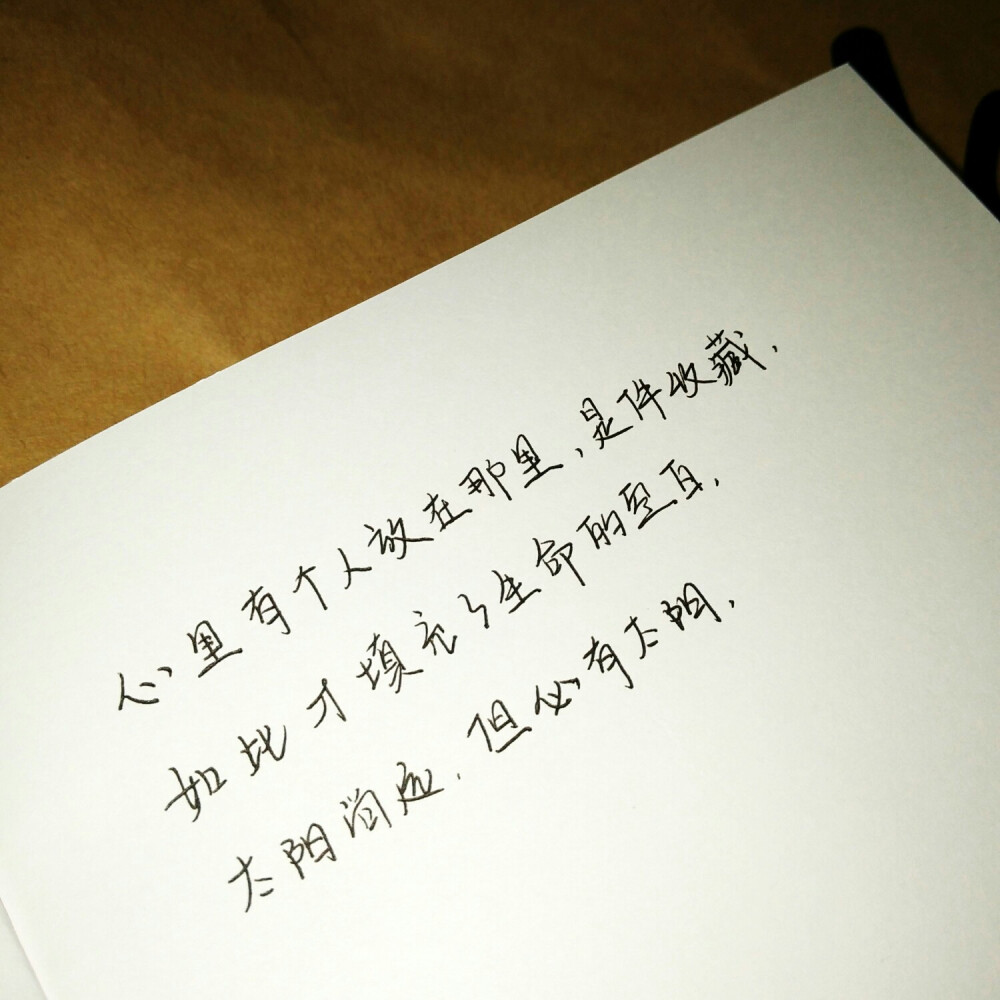 心里有个人放在那里,是件收藏.
如此才填充了生命的空白.
太阳尚远.但必有太阳.